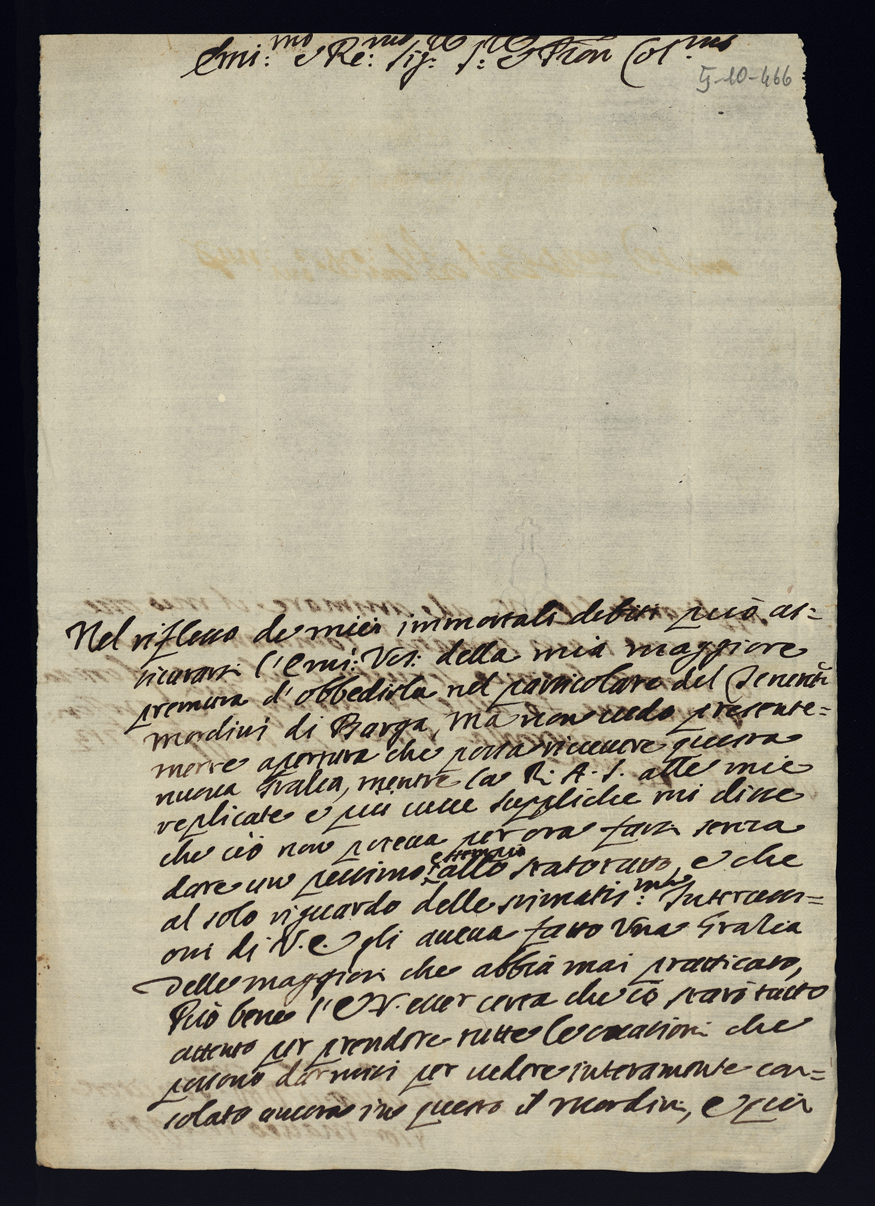 Emi:mo e Re:mo Sig:re S:re e Pron Col:mo
5-10-466
Nel riflesso de miei immortali debiti può as=
sicurarsi l'Emi: Vos: della mia maggiore
premura d'obbedirla nel particolare del Tenente
Mordini di Barga, ma non vedo presente=
mente apertura che possa ricevere questa
nuova Grazia, mentre la R. A. S. alle mie
replicate e più vive suppliche mi disse
che ciò non poteva per ora farsi senza
dare un pessimo essempio allo stato tutto, e che
al solo riguardo delle stimatis:me Intercessi=
oni di V. E. gli aveva fatto una Grazia
delle maggiori che abbia mai pratticato,
Può bene l'E. V. esser certa che io starò tutto
attento per prendere tutte le occasioni che
possono darmisi per vedere interamente con=
solato ancora in questo il Mordini, e qui